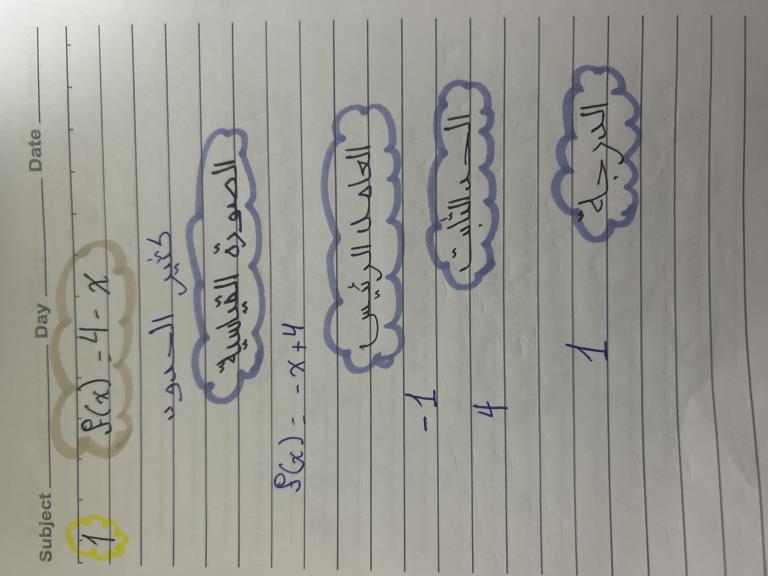 Subject Day Date
1 f(x) = 4 - x
كثير الحدود
الصورة القياسية
f(x) = -x + 4
العامل الرئيس
-1
الحد الثابت
4
الدرجة
1